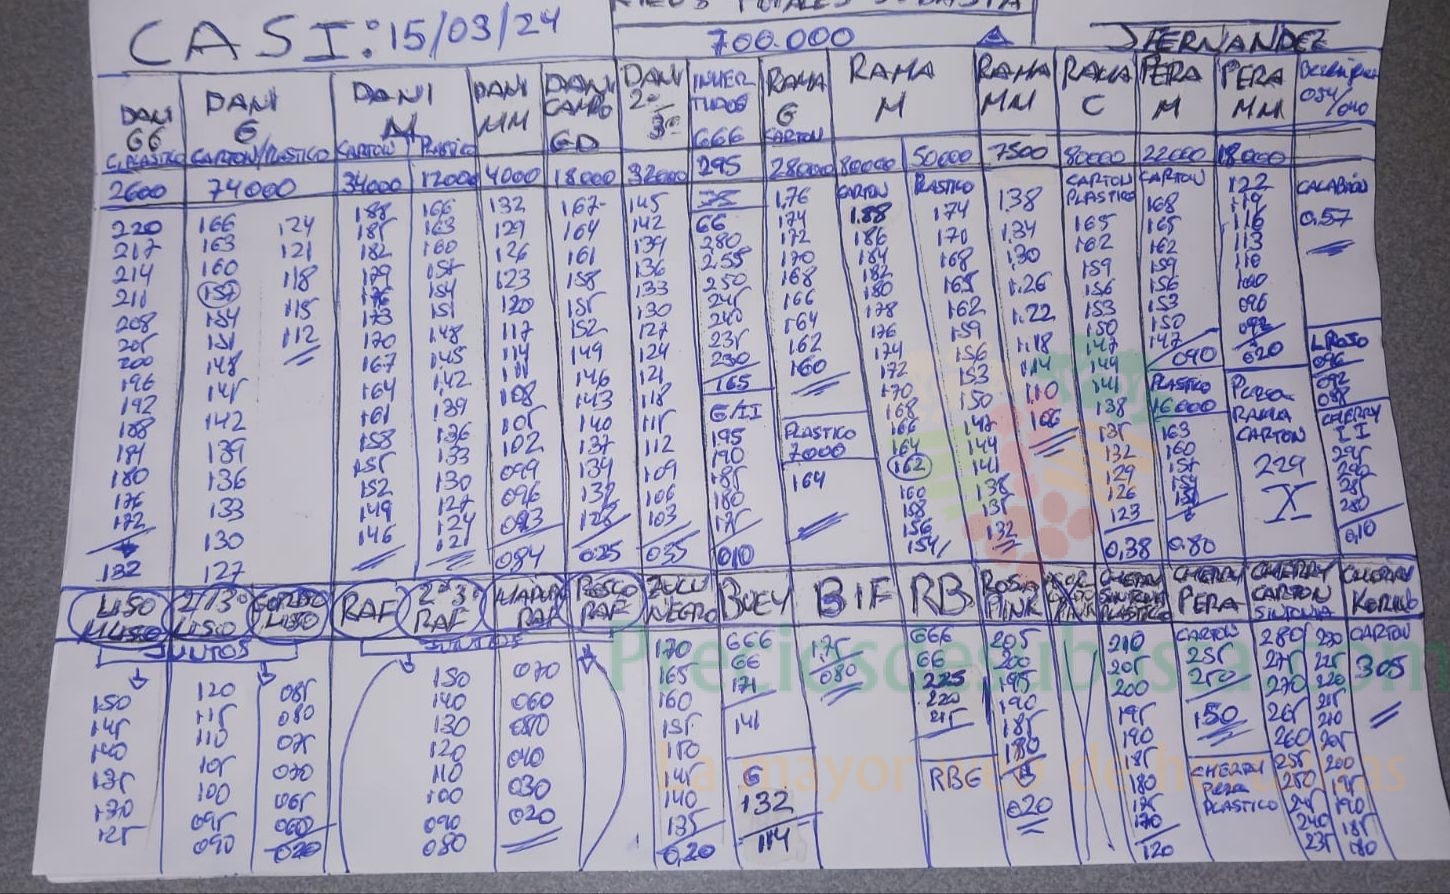 CASI: 15/03/24
700.000
JFERNANDEZ
DANI GG C.PLASTICO
2600
220
217
214
211
208
205
200
196
192
188
184
180
176
172
132
DANI G CARTON/PLASTICO
74000
166
163
160
157
154
151
148
145
142
139
136
133
130
127
124
121
118
115
112
DANI M
CARTON
34000
188
185
182
179
176
173
170
167
164
161
158
155
152
149
146
PLASTICO
12000
166
163
160
157
154
151
148
145
142
139
136
133
130
127
124
121
DANI MM
4000
132
129
126
123
120
117
114
111
108
105
102
099
096
093
084
DANI CAMPO GD
18000
167
164
161
158
155
152
149
146
143
140
137
134
132
128
025
DANI 2ª 3ª
32000
145
142
139
136
133
130
127
124
121
118
115
112
109
106
103
035
INVER TUDOS GGG
295
GG
280
255
250
245
240
235
230
165
G/II
195
190
185
180
175
010
RAMA G CARTON
28000
1.76
174
172
170
168
166
164
162
160
PLASTICO
7000
164
RAMA M
80000
CARTON
1.88
186
184
182
180
178
176
174
172
170
168
166
164
162
160
158
156
154
50000
PLASTICO
174
171
168
165
162
159
156
153
150
147
144
141
138
135
132
RAMA MM
7500
1.38
1.34
1.30
1.26
1.22
1.18
1.14
1.10
106
RAMA C
80000
CARTON
PLASTICO
165
162
159
156
153
150
147
144
141
138
135
132
129
126
123
0,38
PERA M
22000
CARTON
168
165
162
159
156
153
150
147
090
PLASTICO
16000
163
160
157
154
0.80
PERA MM
18000
122
119
116
113
110
100
096
092
020
PERA
RAMA
CARTON
229
X
034/040
CALABAÓN
0.57
L ROJO
096
092
088
CHERRY
II
295
290
285
280
0,10
LISO MLISO
2ª/3ª LISO
GORDO LISO
JUNTOS
150
145
140
135
130
125
120
115
110
105
100
095
090
085
080
075
070
065
060
020
RAF
2ª 3ª RAF
JUNTOS
150
140
130
120
110
100
090
080
MADURO RAF
070
060
050
040
030
020
ROSCO RAF
ZULU NEGRO
170
165
160
155
150
145
140
135
0,20
BUEY
GGG
GG
171
141
G
132
114
BIF
1.75
080
RB
GGG
GG
225
220
215
RBG
ROSA PINK
205
200
195
190
185
180
G
020
CHERRY SINTONIA PLASTICO
210
205
200
195
190
185
180
175
170
120
CHERRY PERA
CARTON
255
250
150
CHERRY
PERA
PLASTICO
CHERRY CARTON SINTONIA
280
275
270
265
260
255
250
245
240
235
230
225
220
215
210
205
200
195
190
185
180
CHERRY KORINO
CARTON
305
Preciosdesubasta.com
La mayor